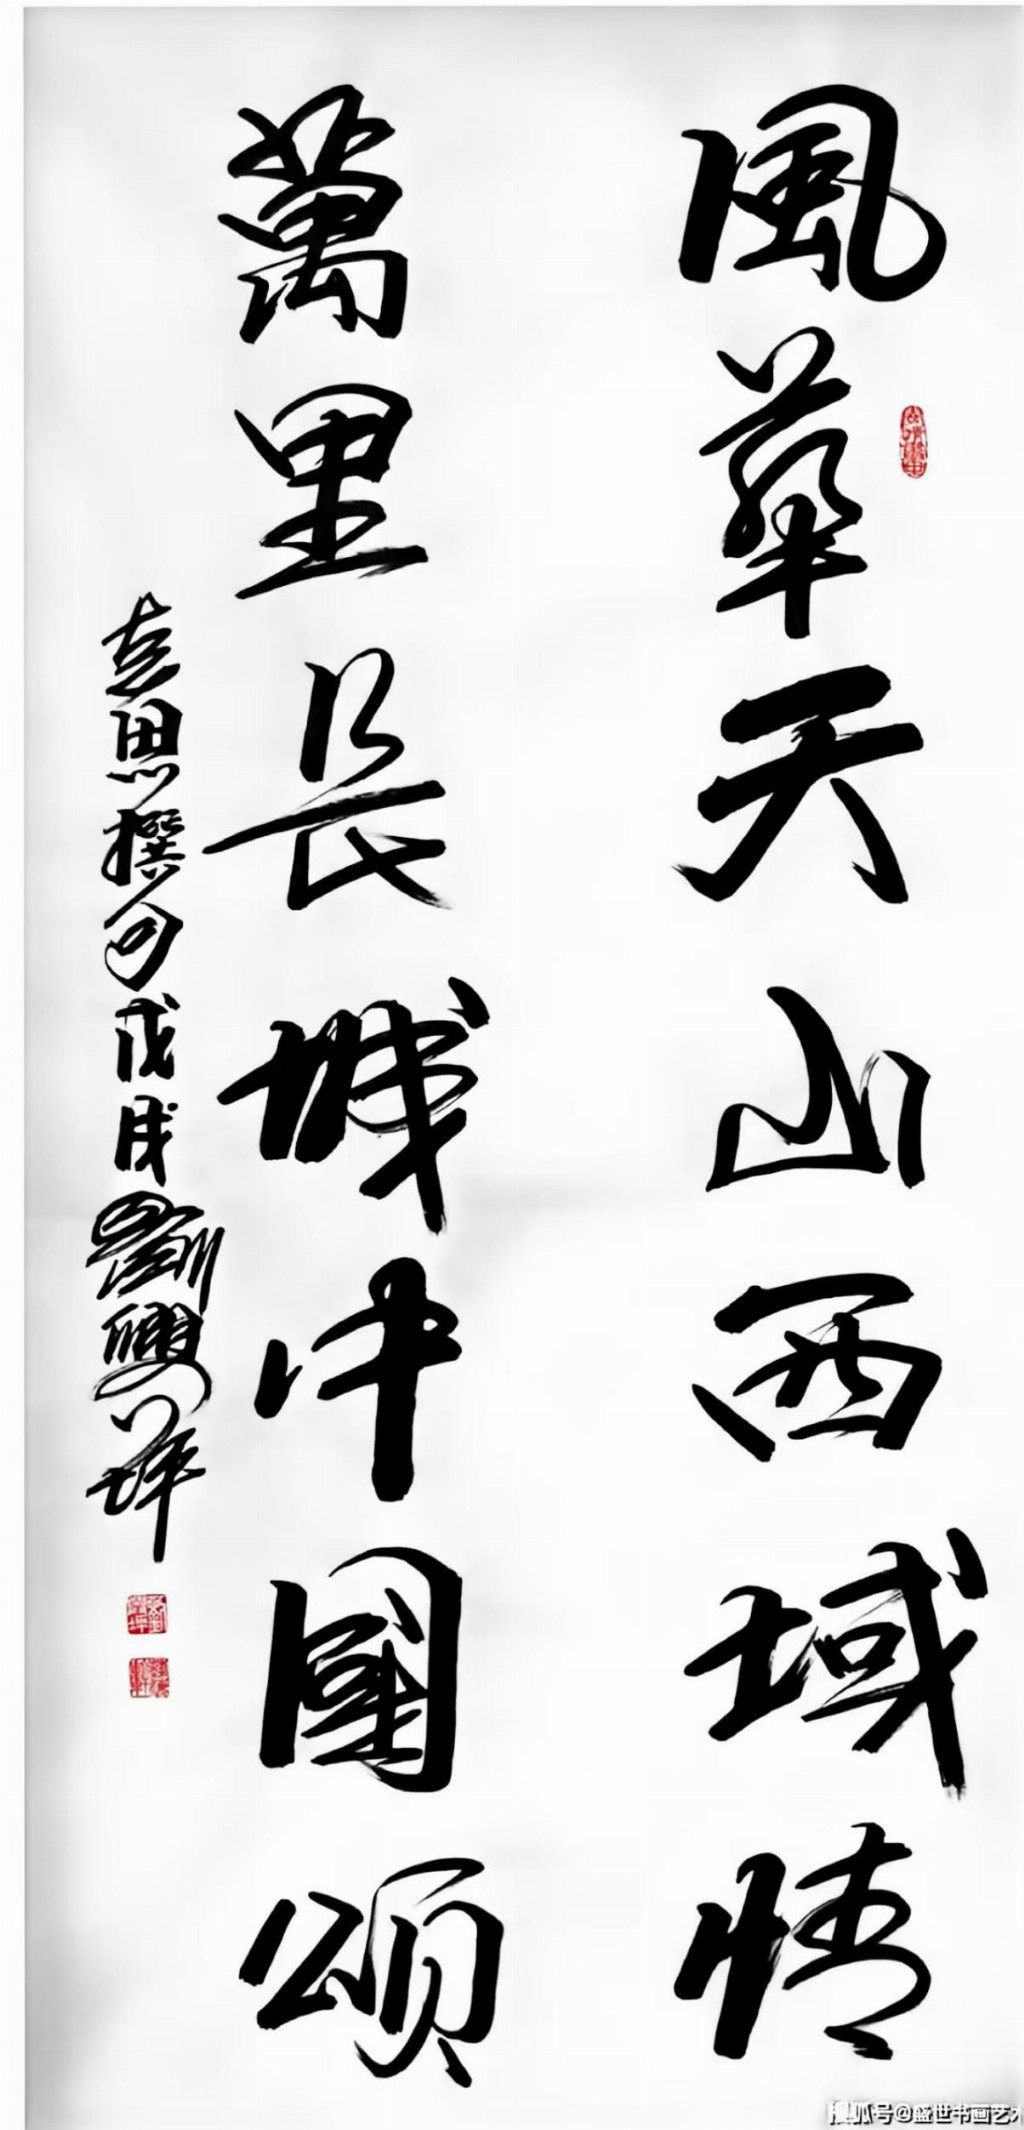 風華天山西域情
萬里長城中國颂
志思撰句戊戌劉興坪
搜狐号@盛世书画艺术